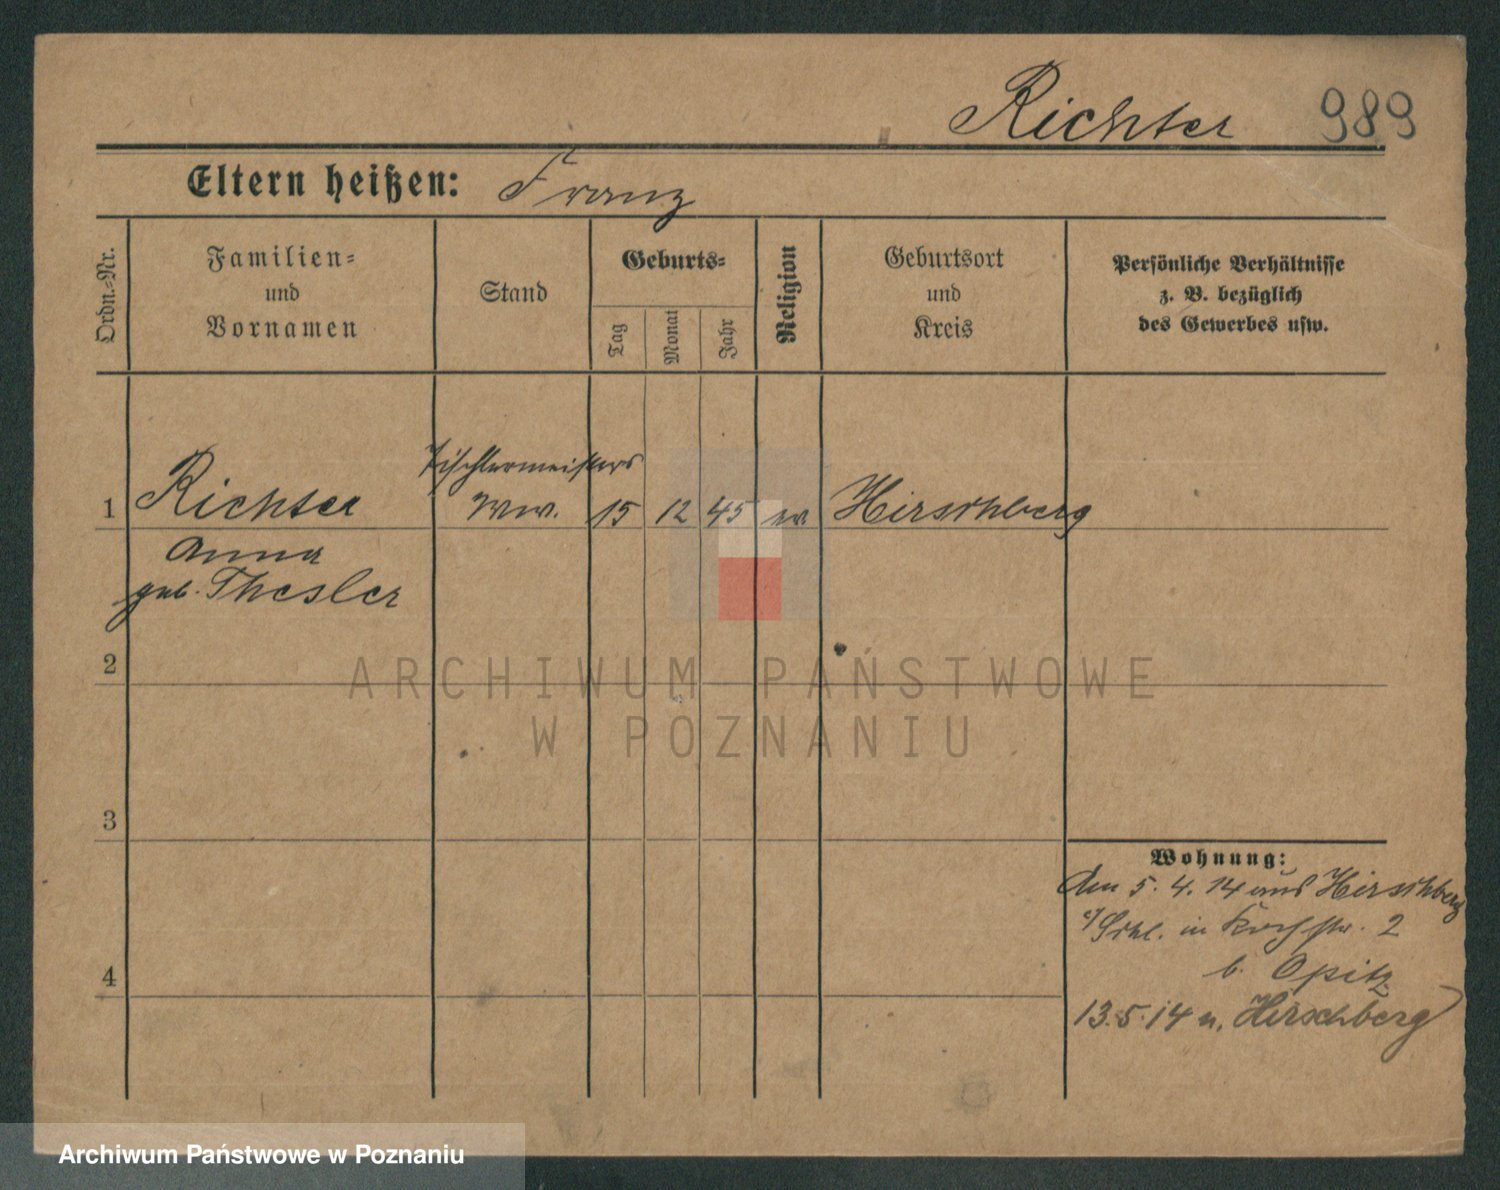 Richter 989
Eltern heißen: Franz
Ordn.-Nr.
Familien-
und
Vornamen
Stand
Geburts-
Tag
Monat
Jahr
Religion
Geburtsort
und
Kreis
Persönliche Verhältnisse
z. B. bezüglich
des Gewerbes usw.
Tischlermeisters
1 Richter Ww. 15 12 45 ev Hirschberg
Anna
geb. Thesler
2
ARCHIWUM PAŃSTWOWE
W POZNANIU
3
Wohnung:
Am 5. 4. 14 aus Hirschberg
in Kochstr. 2
4
b. Opitz
13.5.14 n. Hirschberg
Archiwum Państwowe w Poznaniu